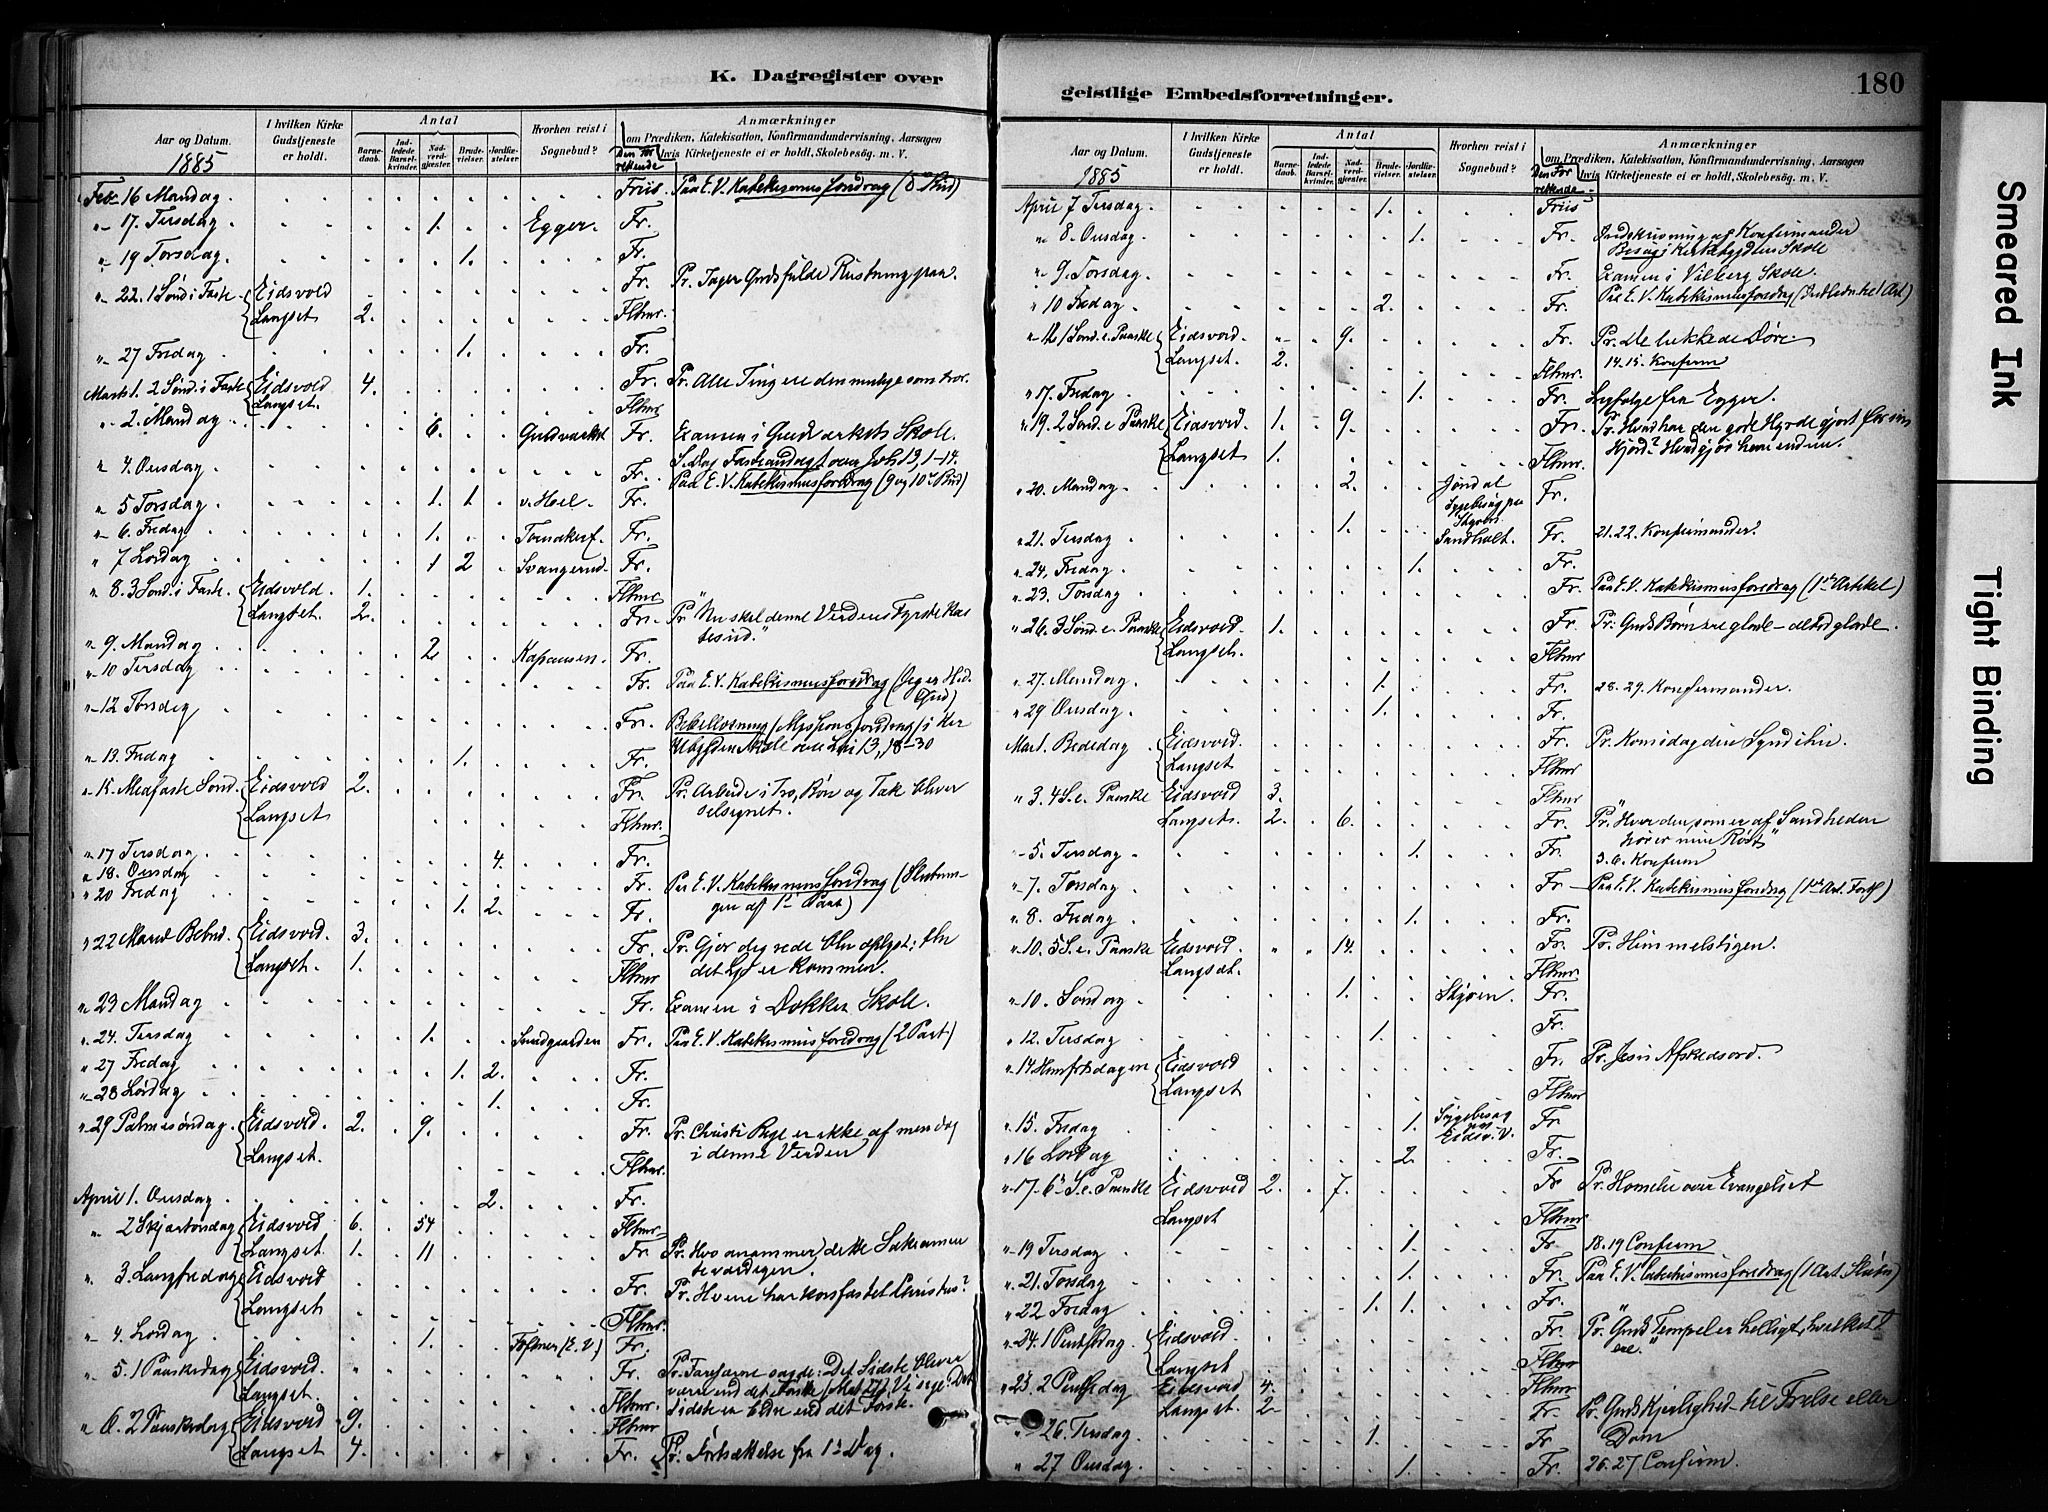 K. Dagregister over
Aar og Datum.
1885
I hvilken Kirke Gudstjeneste er holdt.
Antal
Barnedaab.
Indledede Barselkvinder.
Nadverdgjæster.
Brudevielser.
Jordfæstelser.
Hvorhen reist i Sognebud?
Anmærkninger
om Prædiken, Katekisation, Konfirmandundervisning, Aarsagen
hvis Kirketjeneste ei er holdt, Skolebesøg, m. V.
Feb 16 Mandag Friis Paa E. V. Katekismusforedrag (8 Bud)
" 17. Tirsdag 1. Egger. Fr.
" 19 Torsdag 1. Fr.
" 22. 1 Sønd i Faste Eidsvold Fr. Pr. Tager Guds fulde Rustning paa.
Langset 2. Flhmr.
" 27 Fredag 1. Fr.
Marts 1. 2 Sønd i Faste Eidsvold 4. Fr. Pr. Alle Ting ere den mulige som tror.
Langset. Flhmr
" 2. Mandag 6. Guldværket Fr. Examen i Guldværkets Skole.
S. Dag Fasteandagt over Joh 13, 1-14.
" 4. Onsdag Fr. Paa E. V. Katekismusforedrag (9 og 10 Bud)
" 5 Torsdag 1. 1 v. Hoel Fr.
" 6. Fredag 1. Fr.
" 7 Lørdag 1 2 Svangerud Fr.
" 8. 3 Sønd. i Faste Eidsvold 1. Flhmr
Langset 2. Fr. Pr "Nu skal denne Verdens Fyrste kastes ud."
" 9. Mandag 2 Fr.
" 10 Tirsdag Fr. Paa E. V. Katekismusforedrag (Jeg er H. d. Gud)
" 12 Torsdag Fr. Bibellæsning
13, 18-30
" 13. Fredag 1. Fr.
" 15. Midfaste Sønd. Eidsvold 2. Fr. Pr. Arbeide i Tro, Bøn og Tak bliver velsignet.
Langset Flhmr.
" 17 Tirsdag 4. Fr.
" 18. Onsdag Fr. Paa E. V. Katekismusforedrag (Slutningen af 1ste Part)
" 20 Fredag 1. 2. Fr.
" 22 Mariæ Bebud. Eidsvold. 3. Fr. Pr. Gjør dig rede bliv oplyst; thi det Lys er kommen.
Langset. 1. Flhmr
" 23 Mandag Fr. Examen i Dokken Skole.
" 24. Tirsdag 1. Sundgaarden Fr. Paa E. V. Katekismusforedrag (2 Part)
" 27 Fredag 1. 2. Fr.
" 28 Lørdag 1. Fr.
" 29 Palmesøndag Eidsvold. 2. 9. Fr. Pr. Christi Rige er ikke af men dog i denne Verden
Langset. Flhmr.
April 1. Onsdag 2. Fr.
" 2 Skjærtorsdag Eidsvold 6. 54 Flhmr
Langset. 1. 11 Fr Pr. Hvo anammer dette Sakramente værdigen.
" 3. Langfredag Eidsvold Fr. Pr. Hvem har korsfæstet Christus?
Langset Flhmr.
" 4. Lørdag 1. Fr.
" 5. 1 Paaskedag Eidsvold. Fr. Pr. Farisæerne sagde: Det Sidste bliver værre end det Første (Mat 27) Vi sige: Det Sidste er bedre end det Første.
Langset. Flhmr.
" 6. 2 Paaskedag Eidsvold 9. Flhmr
Langset 4. Fr. Pr. Fortsættelse fra 1ste Dag.
geistlige Embedsforretninger.
180
Aar og Datum.
1885
I hvilken Kirke Gudstjeneste er holdt.
Antal
Barnedaab.
Indledede Barselkvinder.
Nadverdgjæster.
Brudevielser.
Jordfæstelser.
Hvorhen reist i Sognebud?
Anmærkninger
om Prædiken, Katekisation, Konfirmandundervisning, Aarsagen
hvis Kirketjeneste ei er holdt, Skolebesøg, m. V.
April 7 Tirsdag 1. Friis
" 8. Onsdag 1. Fr. Indskrivning af Konfirmander
Besøg i Kirkebygdens Skole
" 9. Torsdag Fr. Examen i Vilberg Skole.
" 10 Fredag 2. Fr. Paa E. V. Katekismusforedrag (Indledn. til Art)
" 12 1 Sønd. e. Paaske Eidsvold. 9. Fr. Pr. De lukkede Døre
Langset. 2. Flhmr. 14. 15. Konfirm
" 17. Fredag 1. Fr. Ligfølge fra Egger.
" 19. 2 Sønd. e. Paaske Eidsvold 1. 9. Fr. Pr. Hvad har den gode Hyrde gjort for sin Hjord? Hvad gjør han endnu.
Langset 1. Flhmr.
" 20. Mandag 2. Jøndal Fr.
Sygebesøg paa
" 21. Tirsdag 1. Sandholt. Fr. 21. 22. Konfirmander.
" 24. Fredag 1. Fr.
" 23. Torsdag Fr. Paa E. V. Katekismusforedrag (1ste Artikel)
" 26. 3 Sønd e. Paaske Eidsvold. 1. Fr. Pr. Guds Børn ere glade
Langset. Flhmr
" 27. Mandag 1. Fr. 28. 29. Konfirmander.
" 29 Onsdag 1. Fr.
Mai 1. Bededag Eidsvold. Fr. Pr. Kom i dag din Synd ihu
Langset. Flhmr
" 3. 4 S. e. Paaske Eidsvold 3. Flhmr
Langset. 2. 6. Fr. Pr. "Hver den, som er af Sandheden hører min Røst"
" 5. Tirsdag 1. Fr. 5. 6. Konfirm
" 7. Torsdag Fr Paa E. V. Katekismusforedrag (1ste Art. Forts)
" 8. Fredag 1. Fr.
" 10. 5 S. e. Paaske Eidsvold 14. Fr. Pr. Himmelstigen.
Langset. Flhmr
" 10. Søndag 1. Fr.
" 12. Tirsdag 1. Fr.
" 14 Himfartsdagen Eidsvold Fr. Pr. Jesu Afskedsord.
Langset Flhmr
" 15. Fredag 1. Sygebesøg paa Eidsv. V. Fr.
" 16 Lørdag 2. Fr.
" 17. 6te S. e. Paaske Eidsvold 2. 7. Fr Pr. Homilie over Evangeliet
Langset Flhmr
" 19 Tirsdag 1. Fr 18. 19 Confirm
" 21. Torsdag 1. Fr. Paa E. V. Catekismusforedrag (1 Art. Slutn)
" 22 Fredag 1. 1. Fr.
" 24. 1 Pintsedag Eidsvold. Fr. Pr. "Guds Tempel er helligt, hvilket I ere."
Langset Flhmr
" 25. 2 Pintsedag Eidsvold 4. Flhmr
Langset 2. Fr. Pr. Guds Kjærlighed til Frelse eller Dom
" 26. Tirsdag 1. Fr
" 27 Onsdag 1. Fr. 26. 27 Confirm.
Smeared Ink
Tight Binding